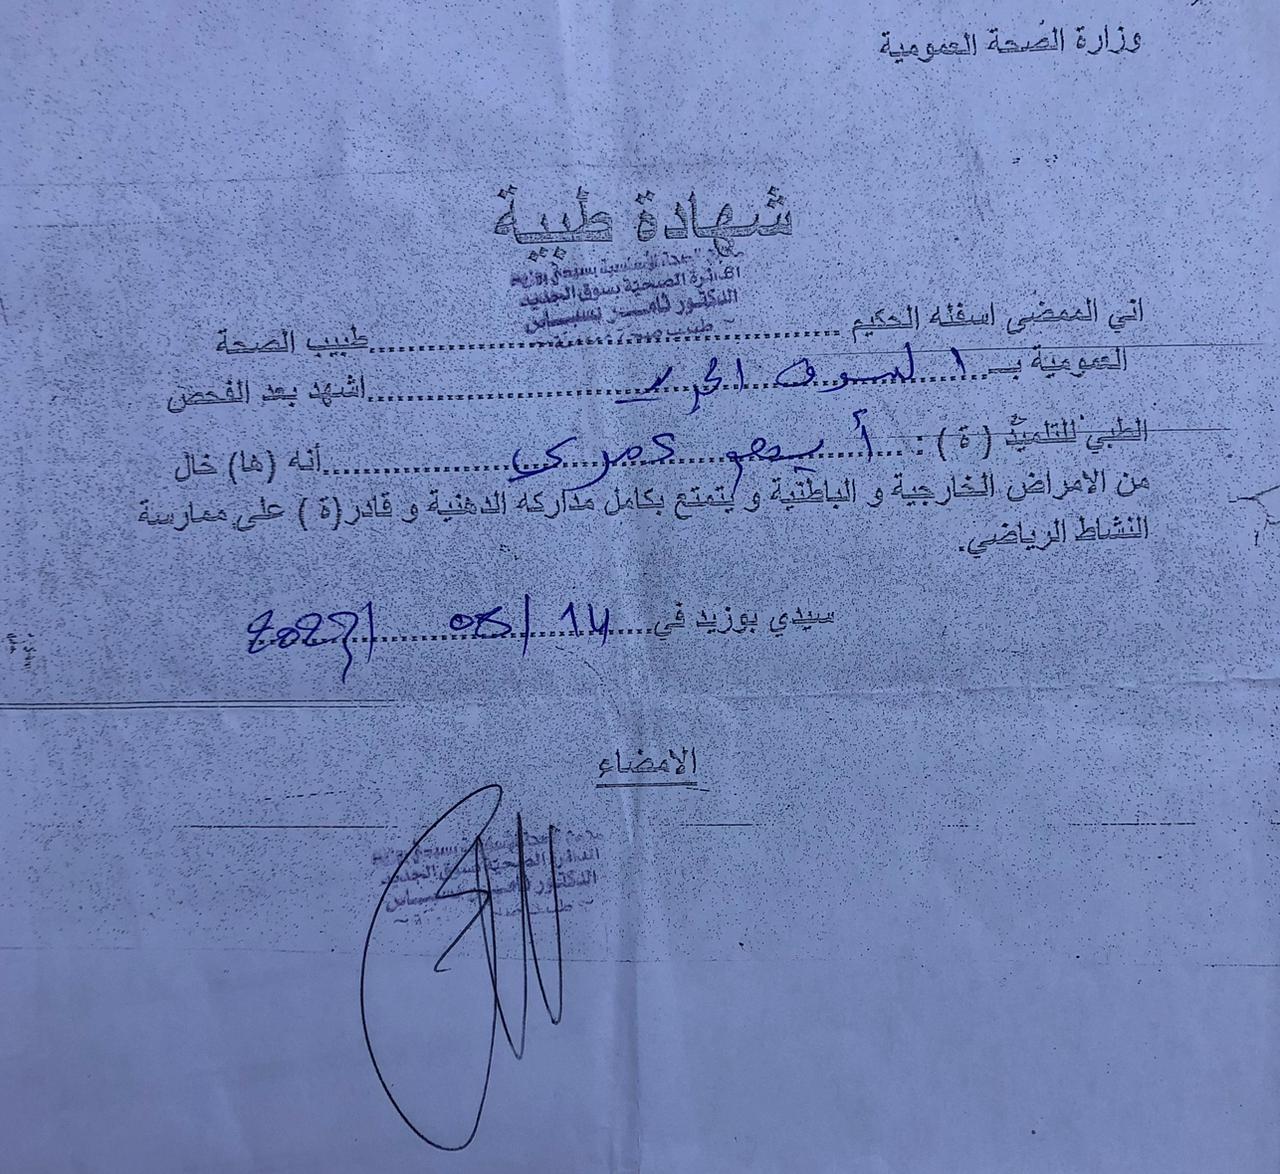 وزارة الصحة العمومية
شهادة طبية
الصحة الأساسية بسيدي بوزيد
الدائرة الصحية بسوق الجديد
الدكتور ثامر
طبيب صحة
اني الممضى اسفله الحكيم ........ طبيب الصحة
العمومية بـ السوق الجديد اشهد بعد الفحص
الطبي للتلميذ ( ة ) : عمري أنه (ها) خال
من الامراض الخارجية و الباطنية و يتمتع بكامل مداركه الدهنية و قادر(ة ) على ممارسة
النشاط الرياضي.
سيدي بوزيد في 14/08/2027
الامضاء
بسيدي بوزيد
الدائرة الصحية بسوق الجديد
الدكتور ثامر